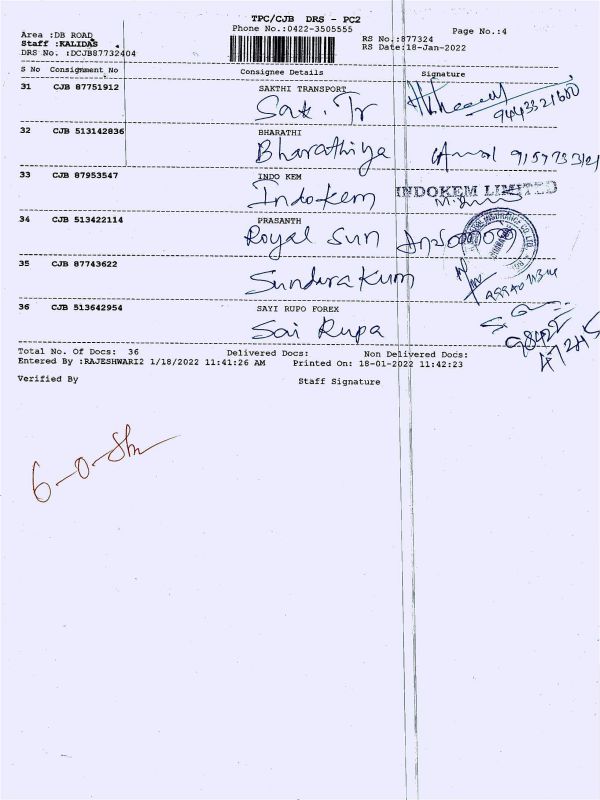 TPC/CJB DRS - PC2
Phone No.:0422-3505555
Page No.:4
Area :DB ROAD
Staff :KALIDAS
DRS No. :DCJB87732404
RS No.:877324
RS Date:18-Jan-2022
S No Consignment No Consignee Details Signature
31 CJB 87751912 SAKTHI TRANSPORT
Sak. Tr 9443321600
32 CJB 513142836 BHARATHI
Bharathiya
33 CJB 87953547 INDO KEM
Indokem INDOKEM LIMITED
34 CJB 513422114 PRASANTH
Royal Sun
35 CJB 87743622
Sundura Kum
36 CJB 513642954 SAYI RUPO FOREX
Sai Rupa
Total No. Of Docs: 36 Delivered Docs: Non Delivered Docs:
Entered By :RAJESHWARI2 1/18/2022 11:41:26 AM Printed On: 18-01-2022 11:42:23
Verified By Staff Signature